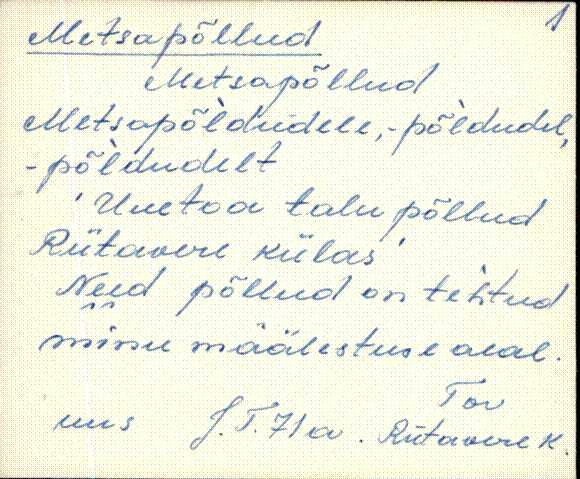 1
Metsapõllud
Metsapõllud
Metsapõ̀ldudele, -põ̀ldudel,
-põ̀ldudelt
'Uuetoa talu põllud
Rütavere külas'
Need põllud on tèhtud
minu määlestuse aeal.
Tor
uus J. T. 71 a. Rütavere k.